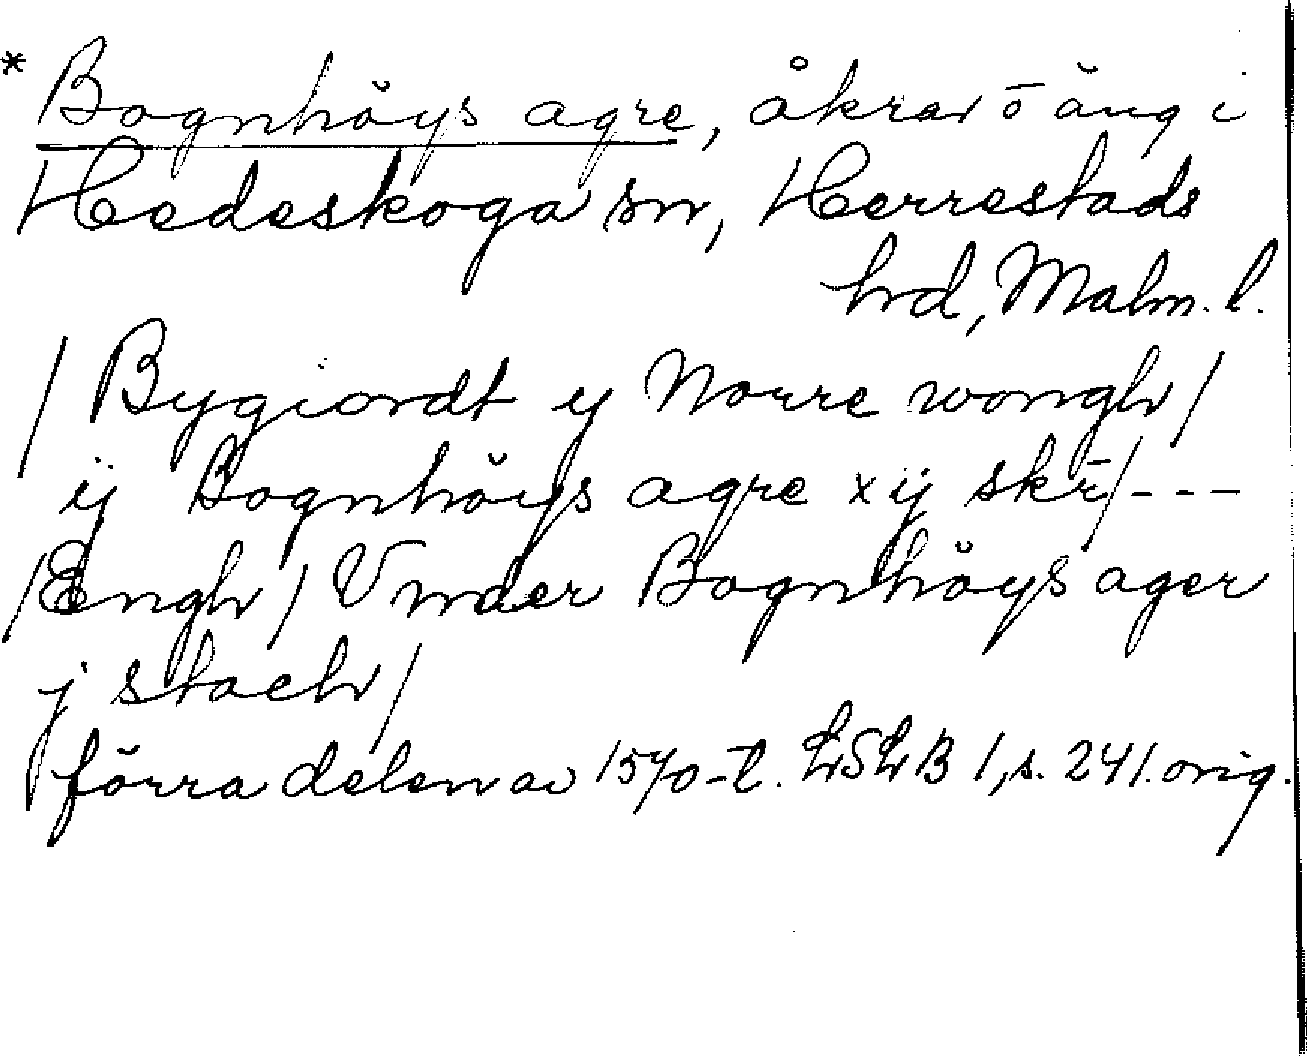 * Bognhöys agre, åkrar o äng i
Hedeskoga sn, Herrestads
hrd, Malm. l.
/ Bygiordt y Norre wongh /
ij Bognhöys agre x ij skr̄ / ---
/ Engh / Vnder Bognhöys ager
j stach /
förra delen av 1570-t. LSLB 1, s. 241. orig.